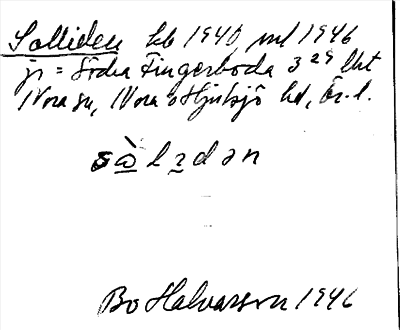 Solliden kb 1940, ml 1946
jr = Södra Fingerboda 3 29 lht
Nora sn, Nora o Hjulsjö hd, Ör. l.
sὰlədən
Bo Halvarsson 1946